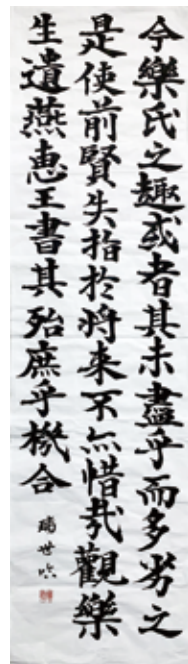 今樂氏之趣或者其未盡乎而多劣之
是使前賢失指於将来不亦惜哉觀樂
生遺燕恵王書其殆庶乎機合
瑞世吟